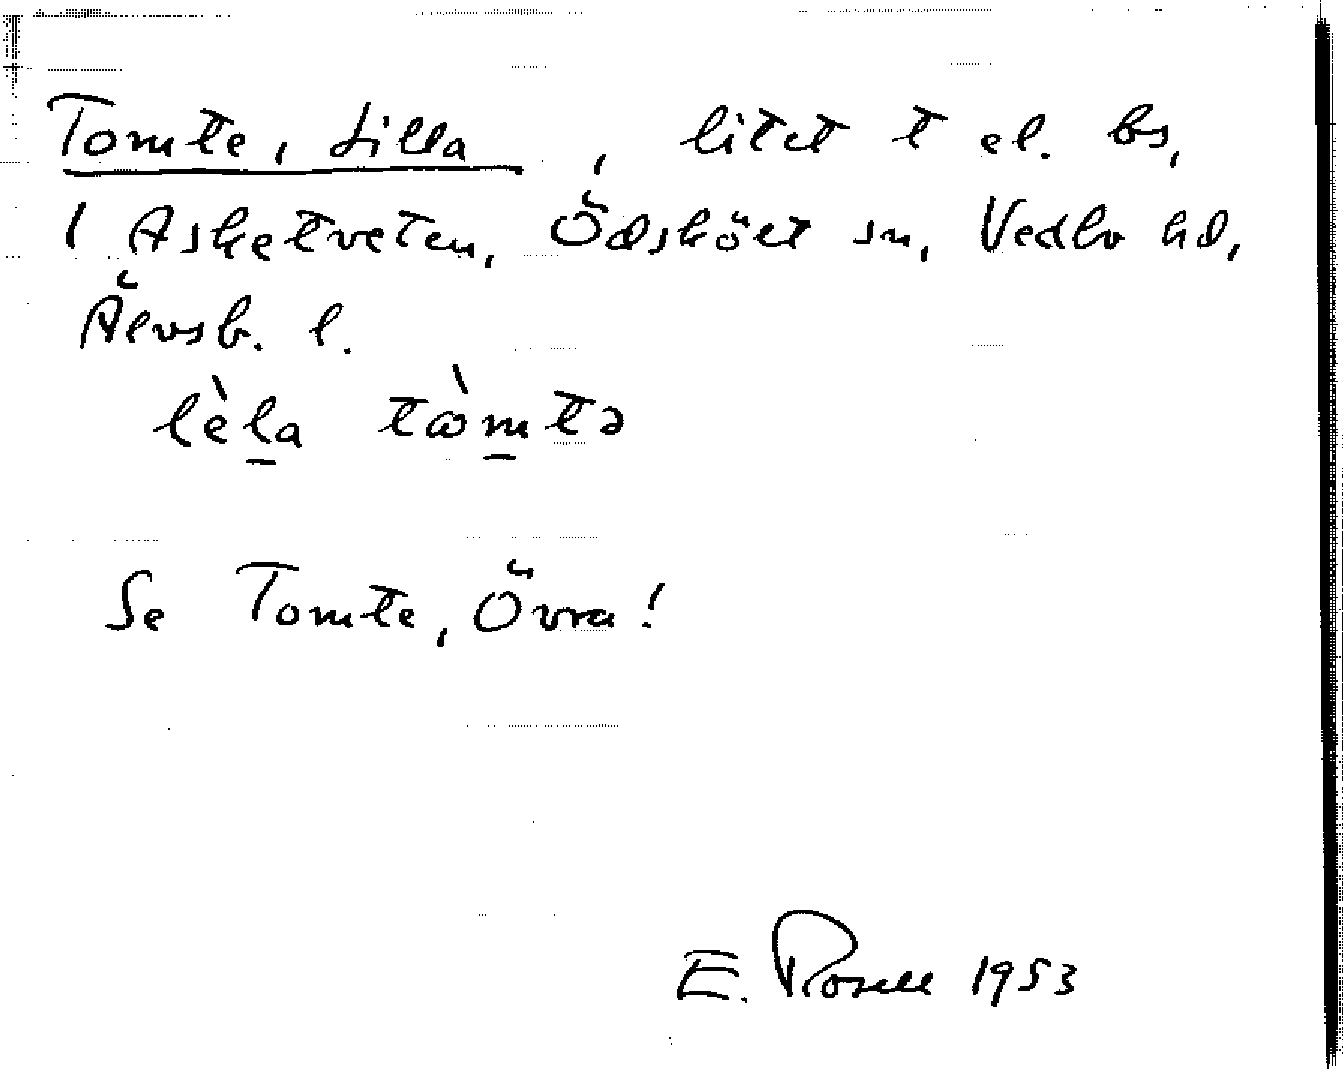 Tomte, Lilla, litet t el. bs,
1 Asketveten, Ödsköлt sn, Vedbo hd,
Älvsb. l.
lè̱la tò̱mtə
Se Tomte, Övra!
E. Rosell 1953